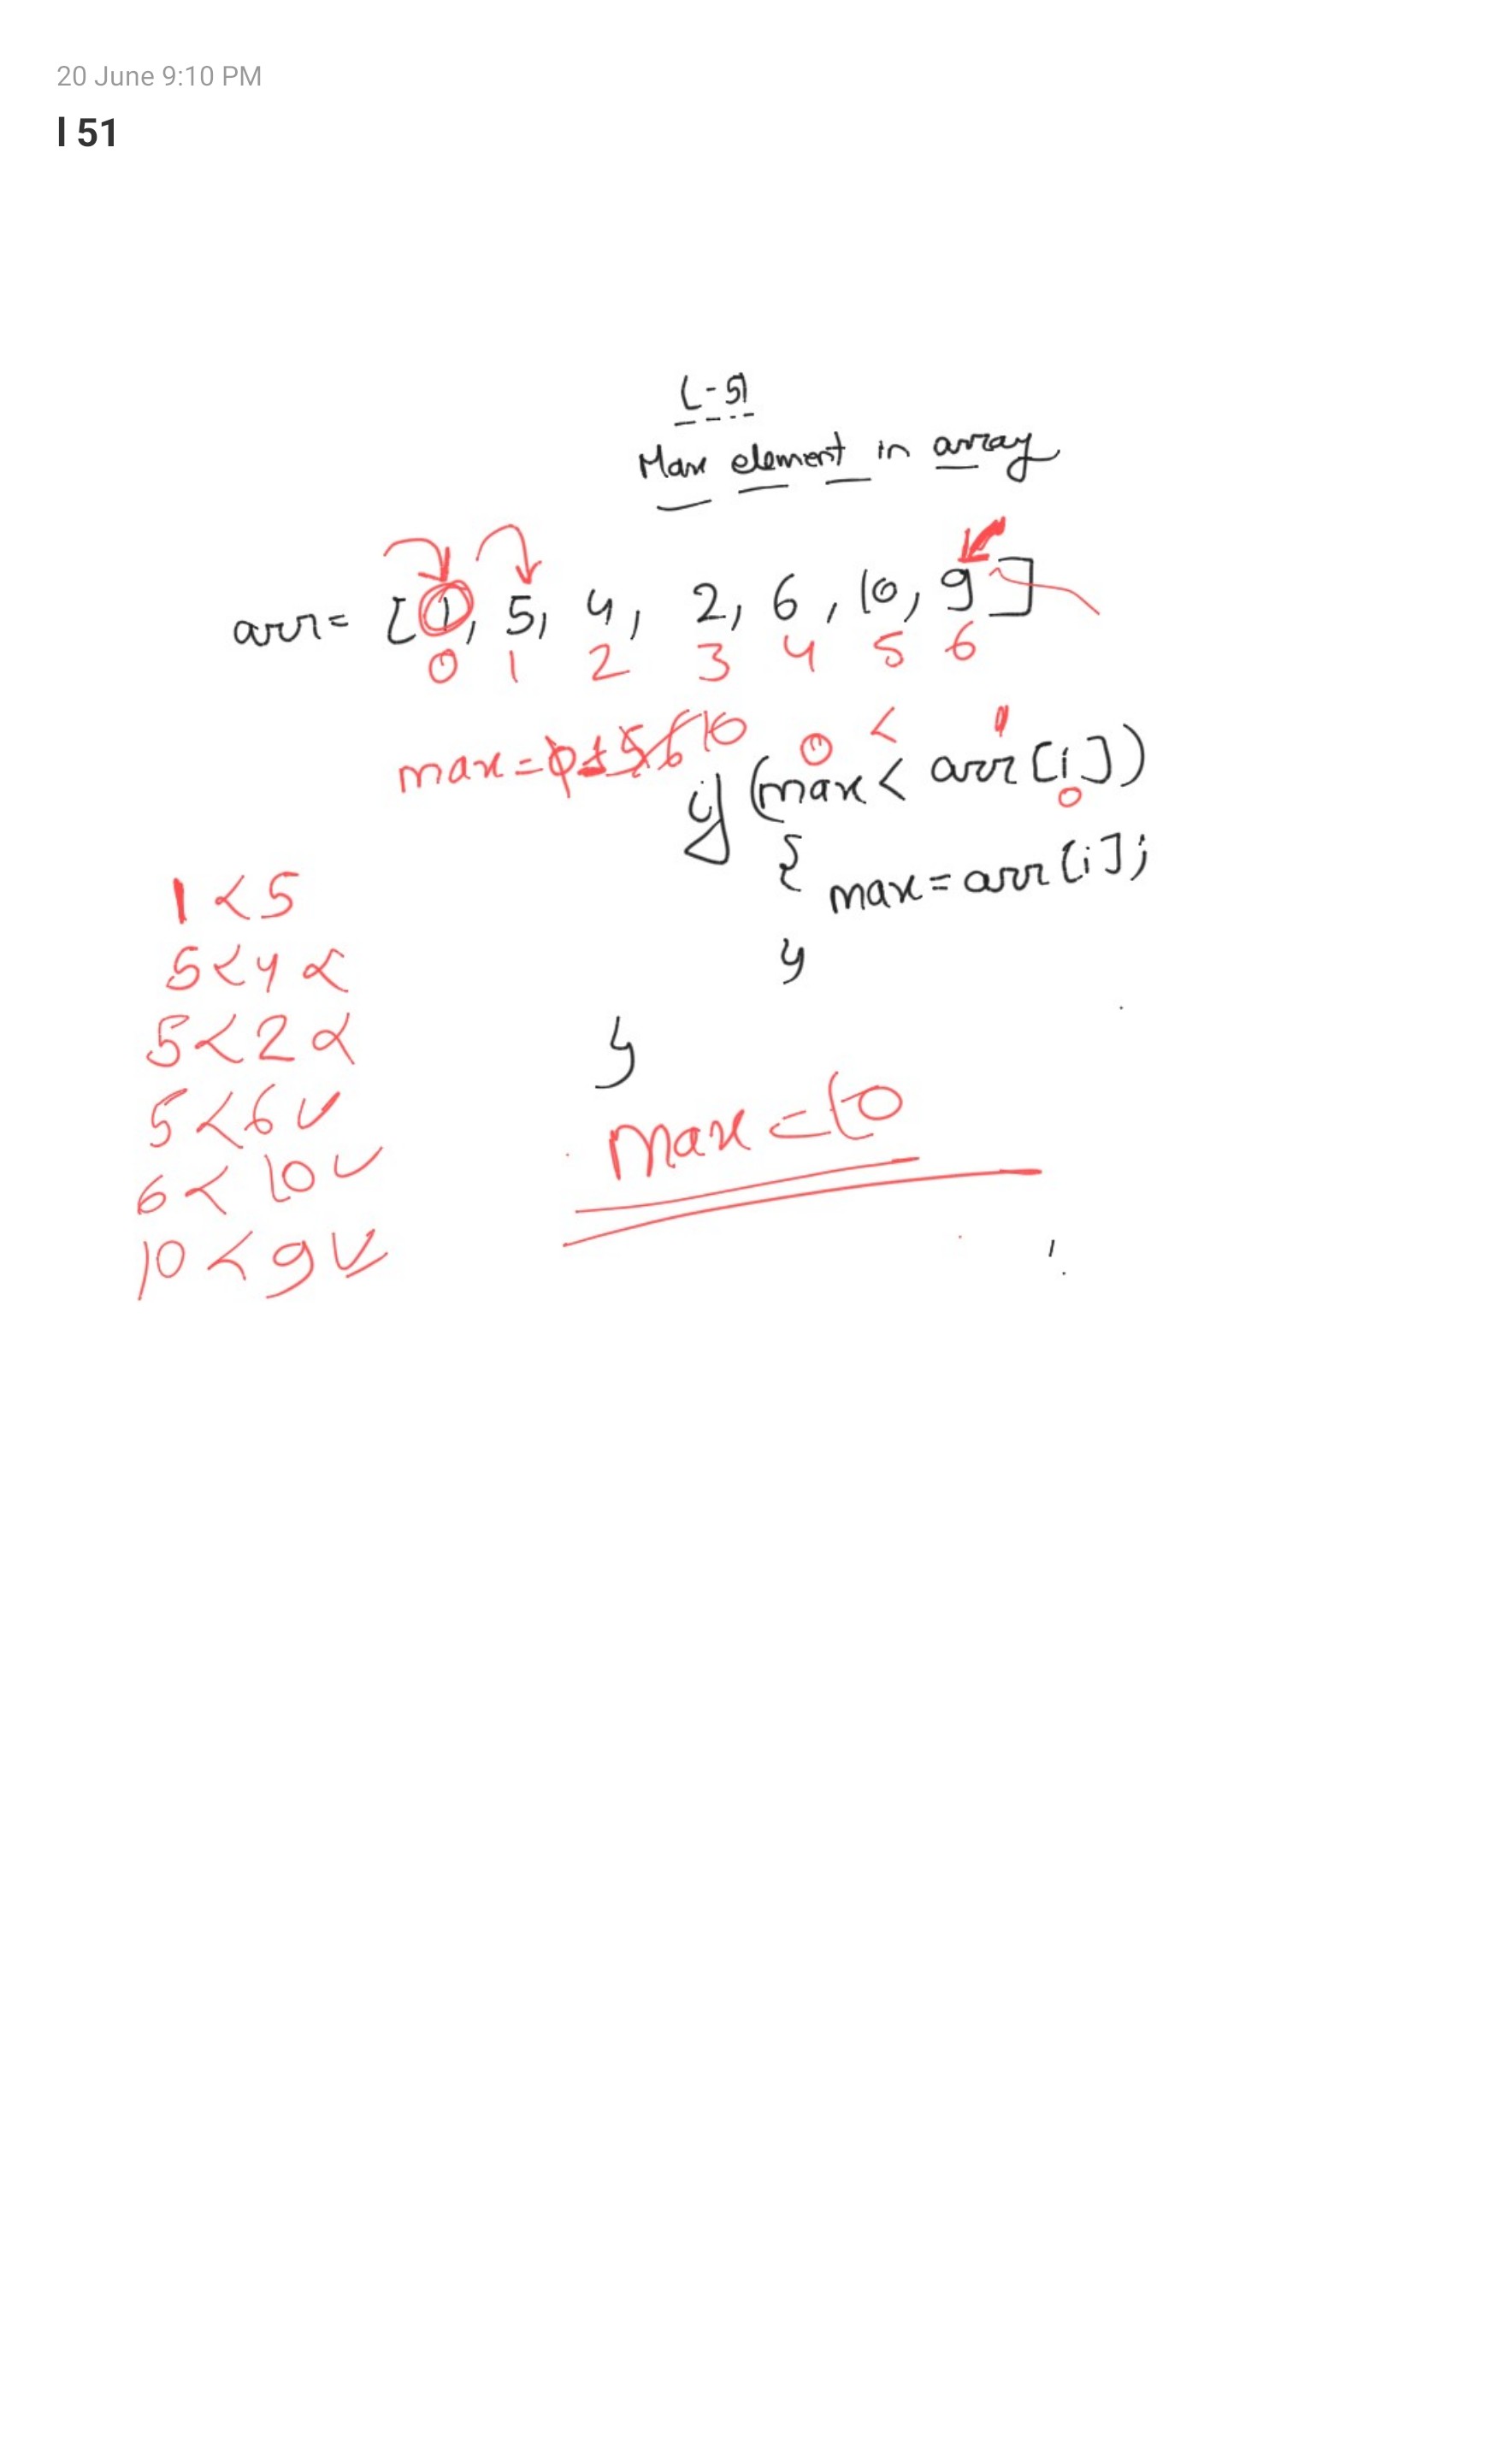 20 June 9:10 PM
l 51
L-51
Max element in array
arr= [1, 5, 4, 2, 6, 10, 9]
0 1 2 3 4 5 6
max = 0 1 5 6 10
0 < 1
if (max < arr[i])
0
{ max = arr[i];
}
}
1 < 5
5 < 4 x
5 < 2 x
5 < 6 ✓
6 < 10 ✓
10 < 9 ✓
max = 10